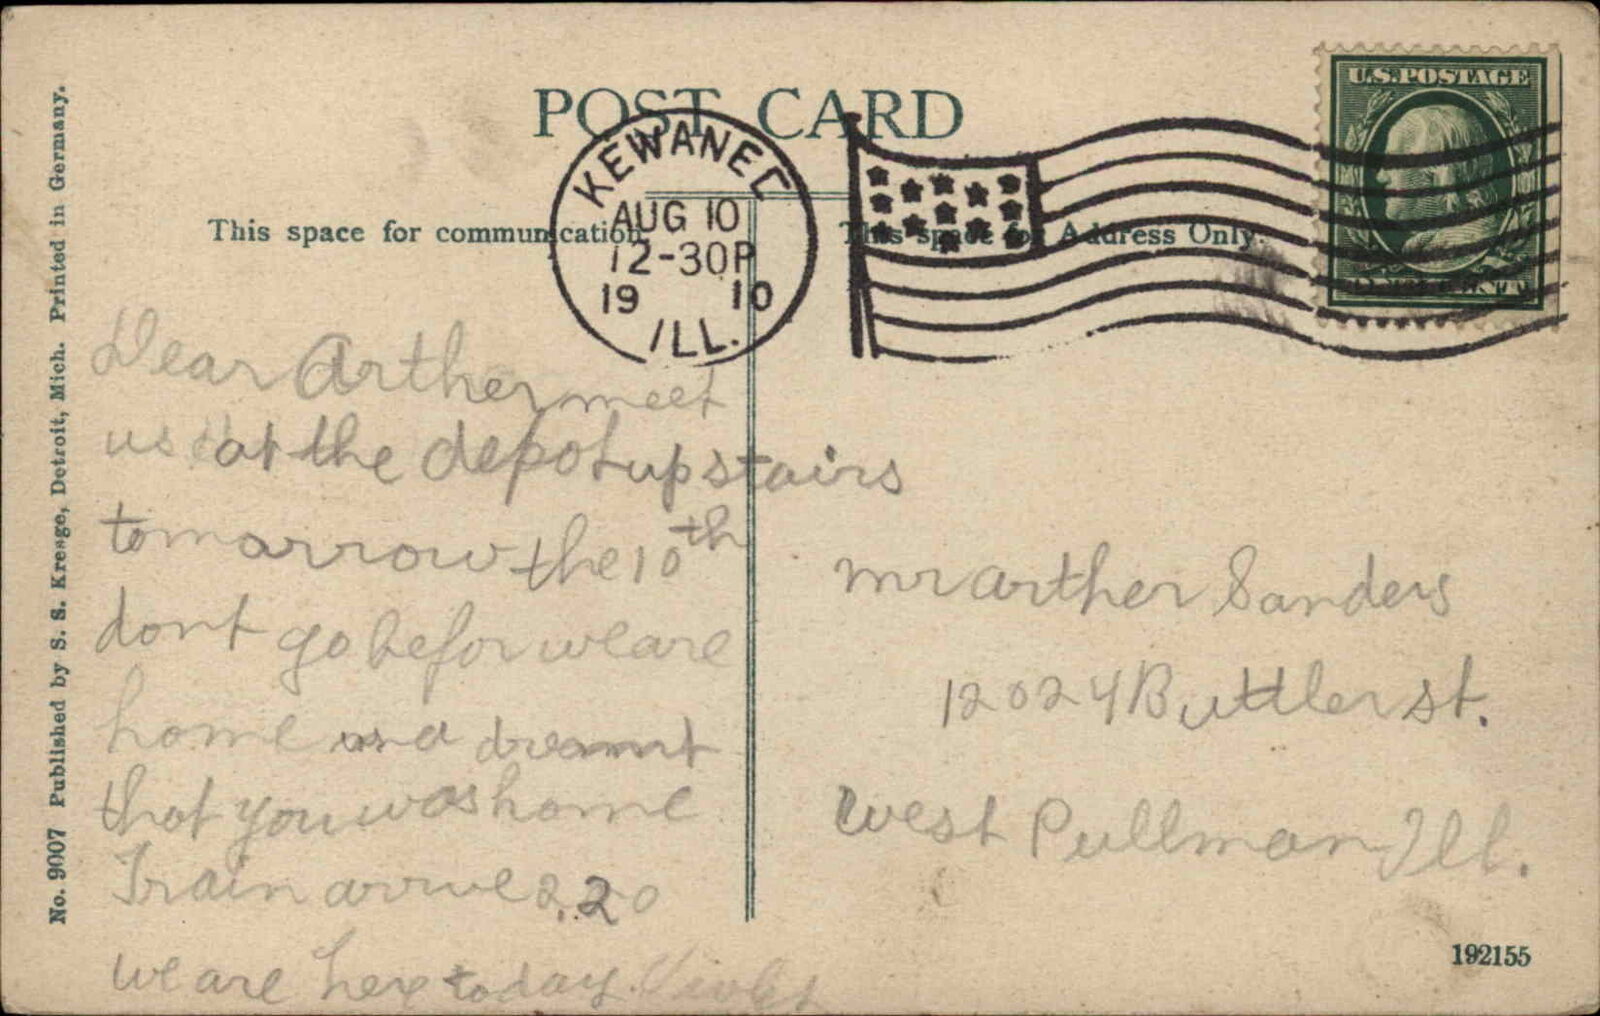 POST CARD
KEWANEE
AUG 10
12-30P
19 10
ILL.
U.S. POSTAGE
This space for communication
This space for Address Only.
Dear Arther meet
us at the depot up stairs
tomarrow the 10th
dont go befor we are
home and
that you was home
Train arrive 2.20
we are here today. Violet
Mr arther Sanders
12024 Buttler st.
West Pullman Ill.
No. 9007 Published by S. S. Kresge, Detroit, Mich. Printed in Germany.
192155